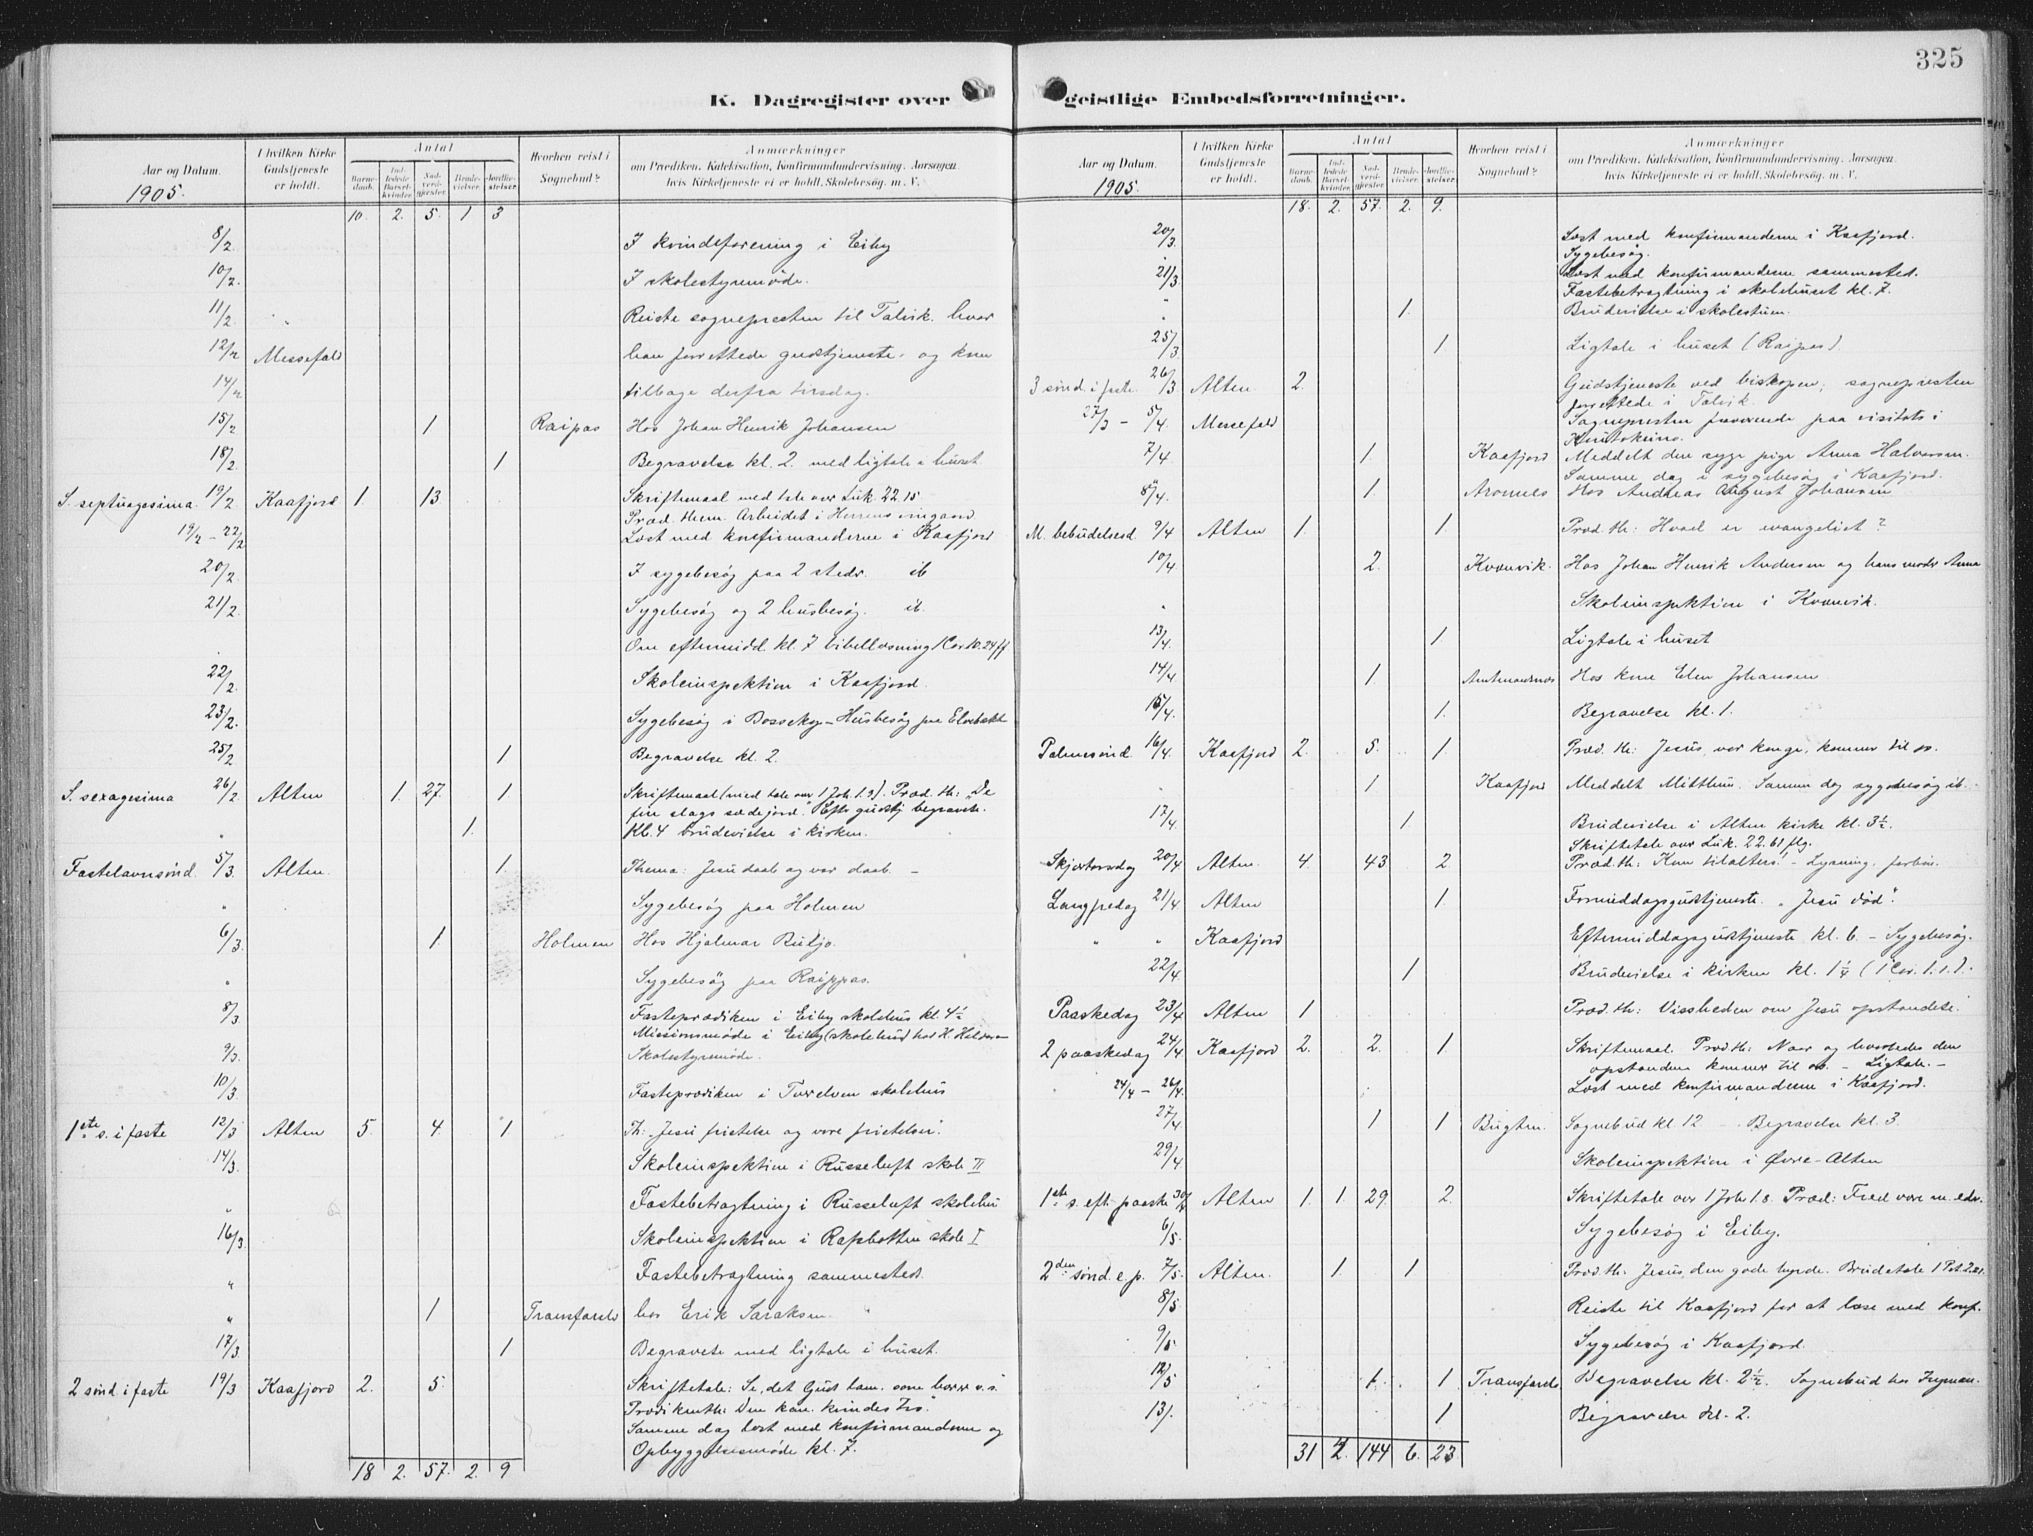 325
K. Dagregister over geistlige Embedsforretninger.
Aar og Datum. 1905.
I hvilken Kirke Gudstjeneste er holdt.
Antal
Barnedaab.
Indledede Barselkvinder.
Nadverdgjester.
Brudevielser.
Jordfæstelser.
Hvorhen reist i Sognebud?
Anmærkninger
om Prædiken. Katekisation, Konfirmandundervisning. Aarsagen,
hvis Kirketjeneste ei er holdt. Skolebesøg. m. V.
10. 2. 5. 1 3
8/2. I kvindeforening i Eiby
10/2. I skolestyremøde.
11/2. Reiste sognepresten til Talvik. hvor
12/2 Messefald han forrettede gudstjeneste. og kom
14/2 tilbage derfra tirsdag.
15/2 1 Raipas Hos Johan Henrik Johansen
18/2. 1 Begravelse kl. 2. med ligtale i huset
S. septuagesima. 19/2 Kaafjord 1. 13 Skriftemaal med tale over Luk 22.15
Præd. them. Arbeidet i Herrens vingaard.
19/2 - 22/2 Læst med konfirmanderne i Kaafjord
20/2. I sygebesøg paa 2 steder. ib
21/2. Sygebesøg og 2 husbesøg. ib.
Om eftermidd. kl. 7 bibellæsning 1 Cor. 10. 24 ff
22/2. Skoleinspektion i Kaafjord.
23/2. Sygebesøg i Bossekop - Husbesøg paa Elvebakken
25/2 1 Begravelse kl. 2.
S. sexagesima 26/2 Alten 1. 27. 1 Skriftemaal (med tale over 1 Joh. 1.9). Præd. th: "De
fire slags sædejord." Efter gudstj begravelse.
" 1. Kl. 4 brudevielse i kirken.
Fastelavnsønd. 5/3. Alten. 1. Thema: Jesu daab og vor daab. -
" Sygebesøg paa Holmen
6/3. 1. Holmen Hos Hjalmar Butjo.
" Sygebesøg paa Raippas.
8/3 Fasteprædiken i Eiby skolehus kl. 4½
Missionsmøde i Eiby (skolehus) hos H. Halvorsen
9/3. Skolestyremøde.
10/3. Fasteprædiken i Tverelven skolehus
1ste s. i faste 12/3 Alten 5. 4. 1 Th: "Jesu fristelse og vore fristelser".
14/3. Skoleinspektion i Russeluft skole II
" Fastebetragtning i Russeluft skolehus
16/3. Skoleinspektion i Rafsbotten skole I
" Fastebetragtning sammesteds.
" 1 Transfarelv hos Erik Saraksen.
17/3. 1 Begravelse med ligtale i huset.
2 sönd. i faste 19/3 Kaafjord 2. 5. Skriftetale: Se, det Guds lam. som bærer v. s.
Prædikenth: Den kan. kvindes tro.
Samme dag læst med konfirmanderne og
Opbyggelsesmøde kl. 7.
18 2. 57. 2. 9
Aar og Datum. 1905.
I hvilken Kirke Gudstjeneste er holdt.
Antal
Barnedaab.
Indledede Barselkvinder.
Nadverdgjester.
Brudevielser.
Jordfæstelser.
Hvorhen reist i Sognebud?
Anmærkninger
om Prædiken. Katekisation, Konfirmandundervisning. Aarsagen,
hvis Kirketjeneste ei er holdt. Skolebesøg. m. V.
18. 2. 57. 2. 9.
20/3. Læst med konfirmanderne i Kaafjord.
Sygebesøg.
21/3. Læst med konfirmanderne sammested.
Fastebetragtning i skolehuset kl. 7.
" 1. Brudevielse i skolestuen.
25/3. 1 Ligtale i huset (Raipas)
3 sönd. i faste. 26/3 Alten 2. Gudstjeneste ved biskopen; sognepresten
forrettede i Talvik.
27/3 - 5/4. Messefald Sognepresten fraværende paa visitats i
Kautokeino.
7/4. 1. Kaafjord Meddelt den syge pige Anna Halvorsen.
Samme dag i sygebesøg i Kaafjord.
8/4. 1. Aronnes Hos Andreas August Johansen
M. bebudelsesd 9/4 Alten 1. 1 Præd. th: Hvad er evangeliet?
10/4. 2. Kvænvik. Hos Johan Henrik Andersen og hans moder Anna
" Skoleinspektion i Kvænvik.
13/4. 1 Ligtale i huset
14/4 1 Amtmandsnæs Hos kone Elen Johansen
15/4. 1. Begravelse kl. 1.
Palmesønd. 16/4. Kaafjord 2. 5. 1. Præd. th: Jesus, vor konge, kommer til os.
" 1 Kaafjord Meddelt Mitthun. Samme dag sygebesøg ib.
17/4. 1 Brudevielse i Alten kirke kl. 3½.
Skriftetale over Luk. 22. 61 flg.
Skjærtorsdag 20/4 Alten. 4. 43 2. Præd. th: Kom til alters! - Lysning. forbøn.
Langfredag 21/4 Alten 1. Formiddagsgudstjeneste. "Jesu død".
" " Kaafjord Eftermiddagsgudstjeneste kl. 6 - Sygebesøg.
22/4. 1 Brudevielse i kirken kl. 1¼
Paaskedag 23/4 Alten 1 Præd. th: Vissheden om Jesu opstandelse.
2 paaskedag 24/4 Kaafjord 2. 2. 1 Skriftemaal. Præd th: Naar og hvorledes den
opstandne kommer til os. - Ligtale. -
24/4 - 26/4. Læst med konfirmanderne i Kaafjord.
27/4. 1 1 Bugten. Sognebud kl 12 - Begravelse kl. 3.
29/4 Skoleinspektion i Øvre-Alten
1ste s. eft. paaske 30/4 Alten 1. 1. 29 2. Skriftetale over 1 Joh. 1.8. Præd: Fred være m. eder.
6/5. Sygebesøg i Eiby.
2den sønd. e. p. 7/5. Alten. 1 1 Præd. th: Jesus, den gode hyrde. Brudetale 1 Pet. 2.21.
8/5 Reiste til Kaafjord for at læse med konf.
9/5. Sygebesøg i Kaafjord.
12/5 1. 1 Transfarelv Begravelse kl. 2½. Sognebud hos
13/. 1 Begravelse kl. 2.
31 4 144 6. 23